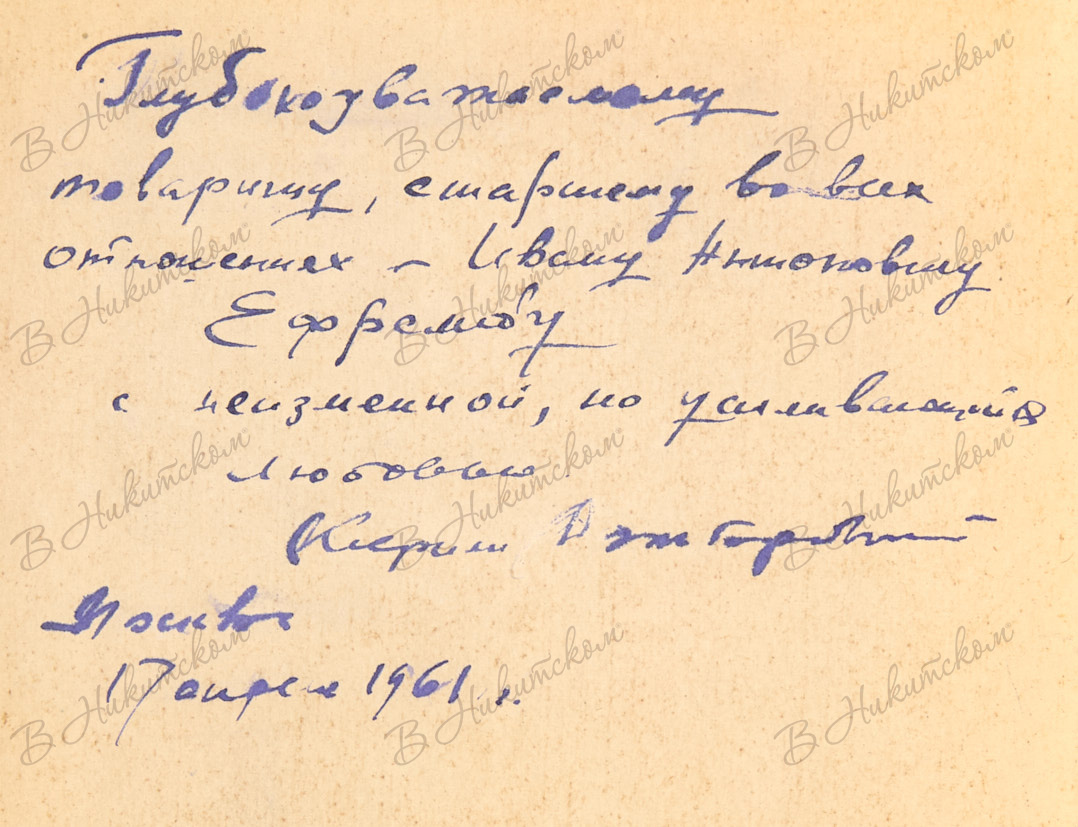 Глубокоуважаемому
товарищу, старшему во всех
отношениях – Ивану Антоновичу
Ефремову
с неизменной, но усиливающейся
любовью
Кирилл
Москва
17 апреля 1961 г.
В Никитском
В Никитском
В Никитском
В Никитском
В Никитском
В Никитском
В Никитском
В Никитском
В Никитском
В Никитском
В Никитском
В Никитском